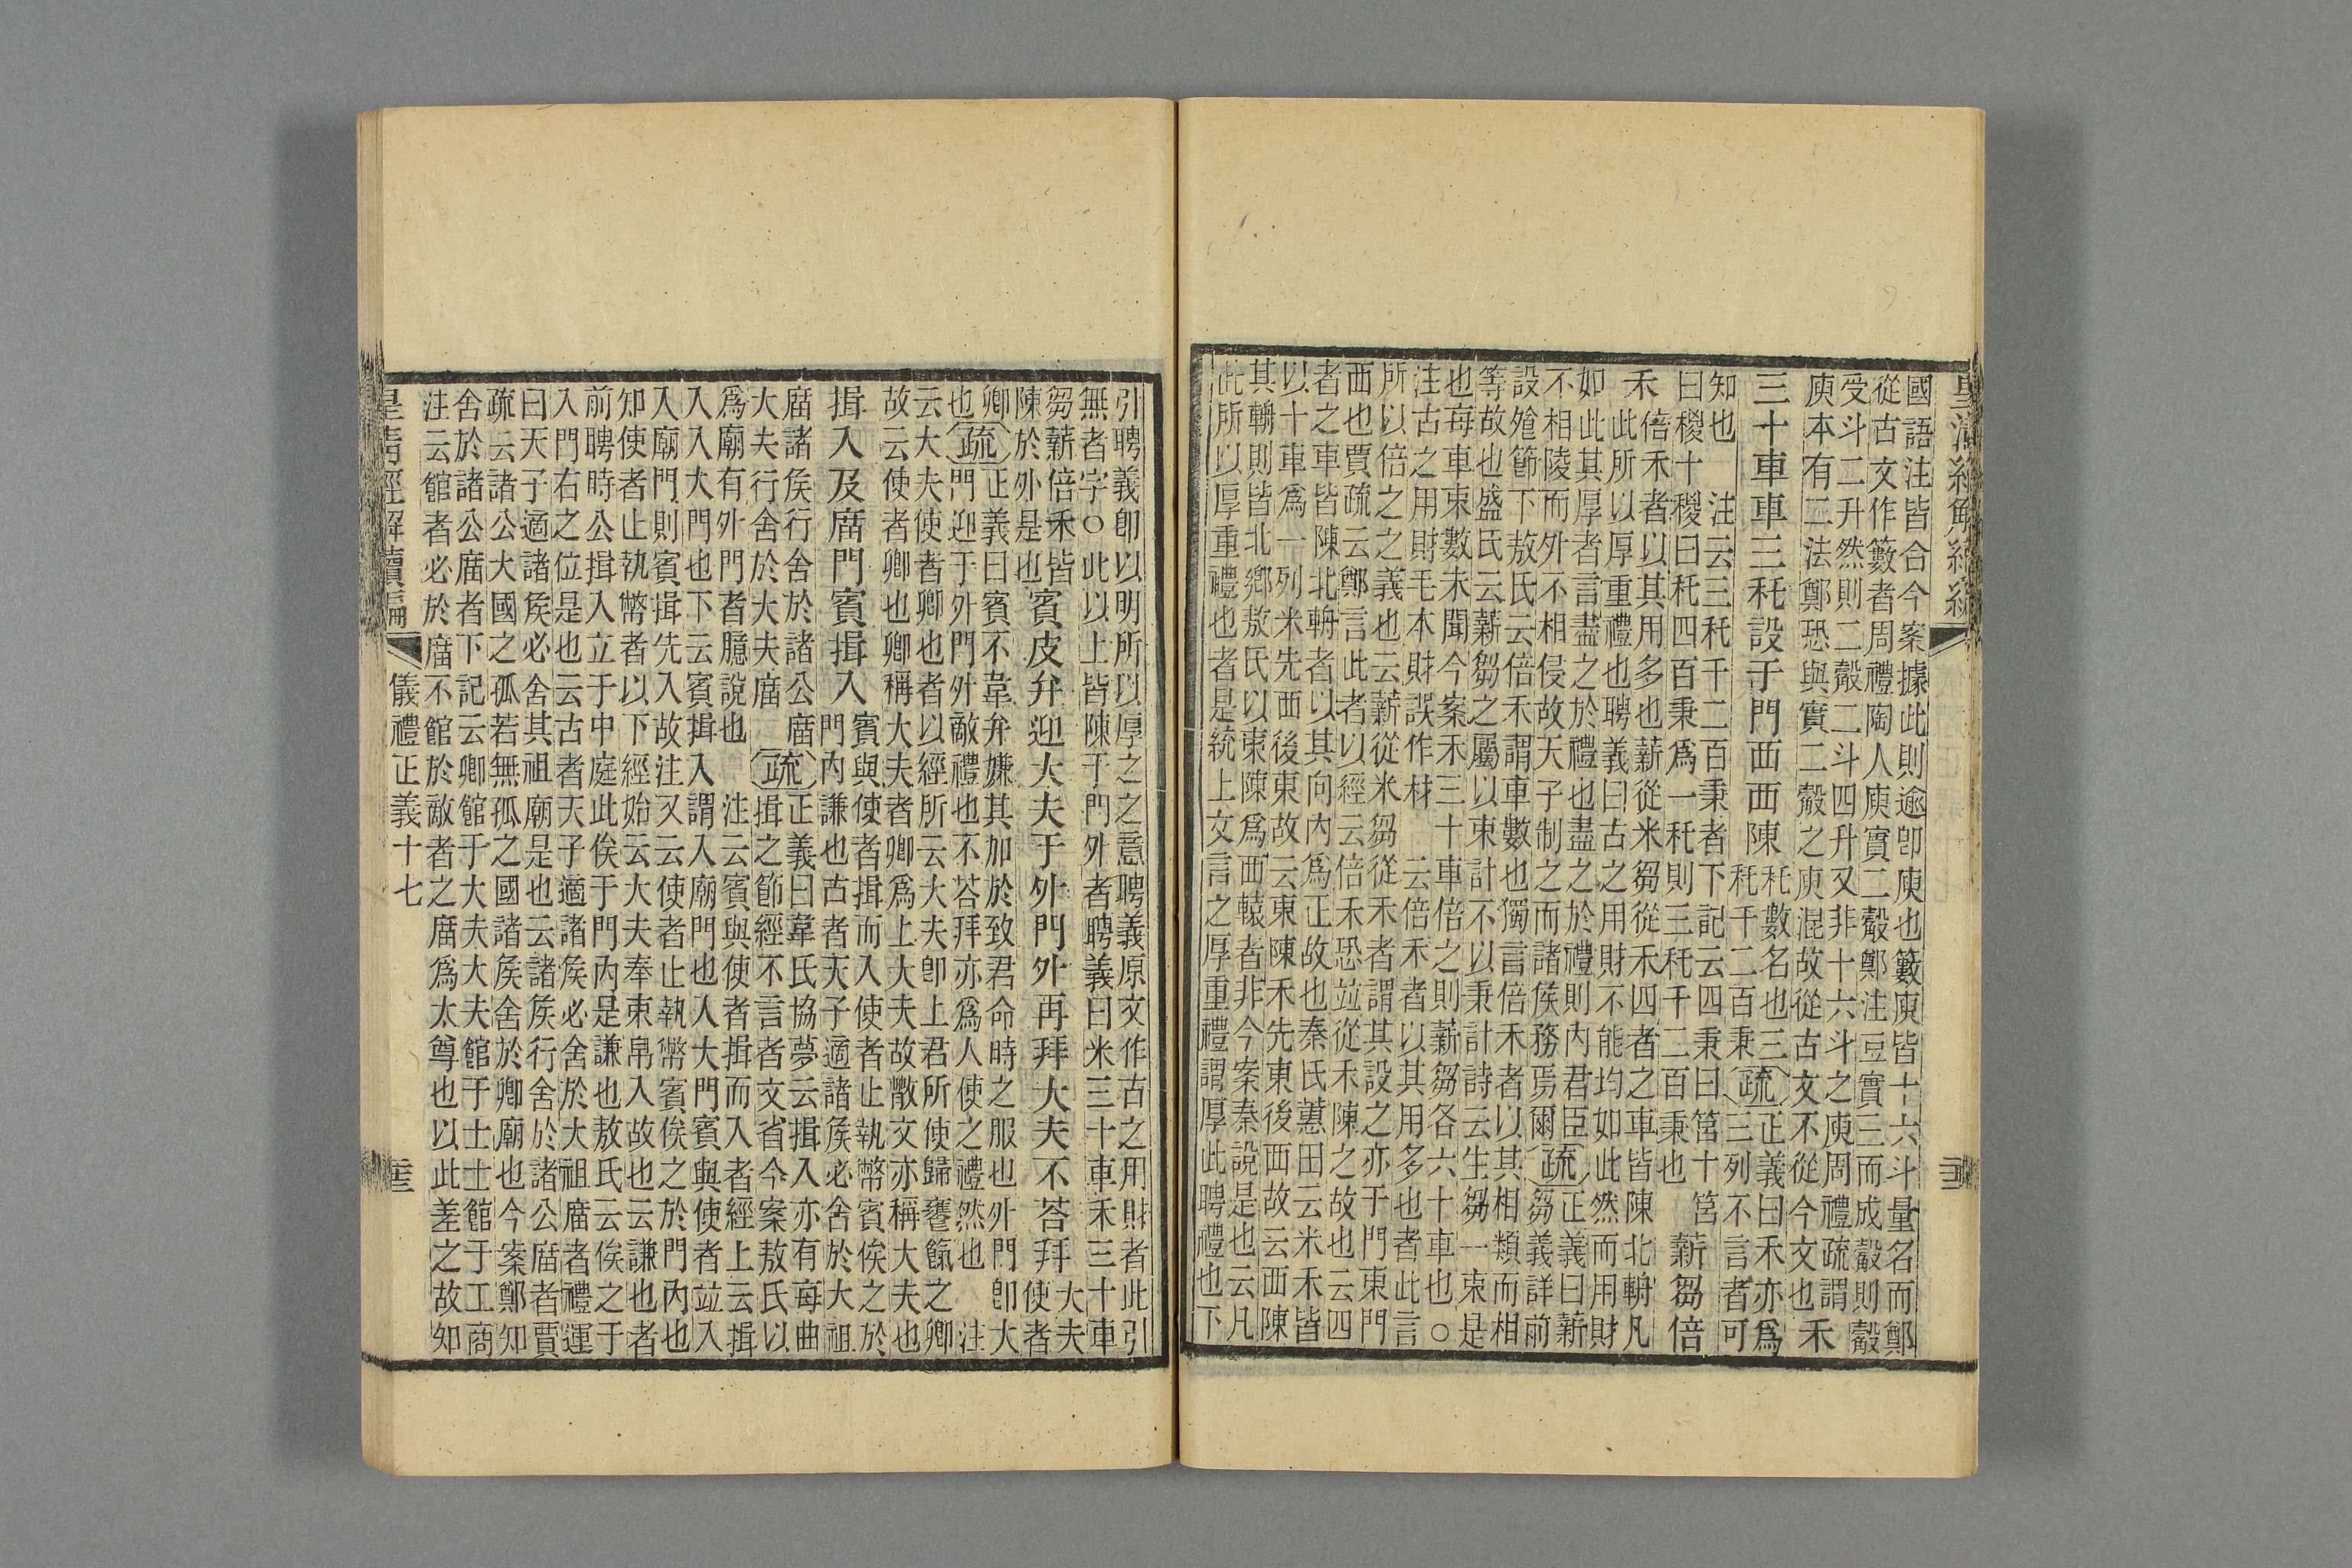 國語注皆合今案據此則逾卽庾也籔庾皆十六斗量名而鄭
從古文作籔者周禮陶人庾實二觳鄭注豆實三而成觳則觳
受斗二升然則二觳二斗四升又非十六斗之庾周禮疏謂
庾本有二法鄭恐與實二觳之庾混故從古文不從今文也 禾
三十車車三秅設于門西西陳
秅數名也三
秅千二百秉
疏
正義曰禾亦爲
三列不言者可
知也 注云三秅千二百秉者下記云四秉曰筥十筥
曰稯十稯曰秅四百秉爲一秅則三秅千二百秉也
薪芻倍
禾
倍禾者以其用多也薪從米芻從禾四者之車皆陳北輈凡
此所以厚重禮也聘義曰古之用財不能均如此然而用財
如此其厚者言盡之於禮也盡之於禮則內君臣
不相陵而外不相侵故天子制之而諸侯務焉爾
疏
正義曰薪
芻義詳前
設飧節下敖氏云倍禾謂車數也獨言倍禾者以其相類而相
等故也盛氏云薪芻之屬以束計不以秉計詩云生芻一束是
也每車束數未聞今案禾三十車倍之則薪芻各六十車也○
注古之用財毛本財誤作材 云倍禾者以其用多也者此言
所以倍之之義也云薪從米芻從禾者謂其設之亦于門東門
西也賈疏云鄭言此者以經云倍禾恐並從禾陳之故也云四
者之車皆陳北輈者以其向內爲正故也秦氏蕙田云米禾皆
以十車爲一列米先西後東故云東陳禾先東後西故云西陳
其輈則皆北鄉敖氏以東陳爲西轅者非今案秦說是也云凡
此所以厚重禮也者是統上文言之厚重禮謂厚此聘禮也下
引聘義卽以明所以厚之之意聘義原文作古之用財者此引
無者字○此以上皆陳于門外者聘義曰米三十車禾三十車
芻薪倍禾皆
陳於外是也
賓皮弁迎大夫于外門外再拜大夫不荅拜
大夫
使者
卿
也
疏
正義曰賓不韋弁嫌其加於致君命時之服也外門卽大
門迎于外門外敵禮也不荅拜亦爲人使之禮然也 注
云大夫使者卿也者以經所云大夫卽上君所使歸饔餼之卿
故云使者卿也卿稱大夫者卿爲上大夫故散文亦稱大夫也
揖入及庿門賓揖入
賓與使者揖而入使者止執幣賓俟之於
門內謙也古者天子適諸侯必舍於大祖
庿諸侯行舍於諸公庿
大夫行舍於大夫庿
疏
正義曰韋氏協夢云揖入亦有每曲
揖之節經不言者文省今案敖氏以
爲廟有外門者臆說也 注云賓與使者揖而入者經上云揖
入入大門也下云賓揖入謂入廟門也入大門賓與使者並入
入廟門則賓揖先入故注又云使者止執幣賓俟之於門內也
知使者止執幣者以下經始云大夫奉束帛入故也云謙也者
前聘時公揖入立于中庭此俟于門內是謙也敖氏云俟之于
入門右之位是也云古者天子適諸侯必舍於大祖庿者禮運
曰天子適諸侯必舍其祖廟是也云諸侯行舍於諸公庿者賈
疏云諸公大國之孤若無孤之國諸侯舍於卿廟也今案鄭知
舍於諸公庿者下記云卿館于大夫大夫館于士士館于工商
注云館者必於庿不館於敵者之庿爲太尊也以此差之故知
皇清經解續編
儀禮正義十七